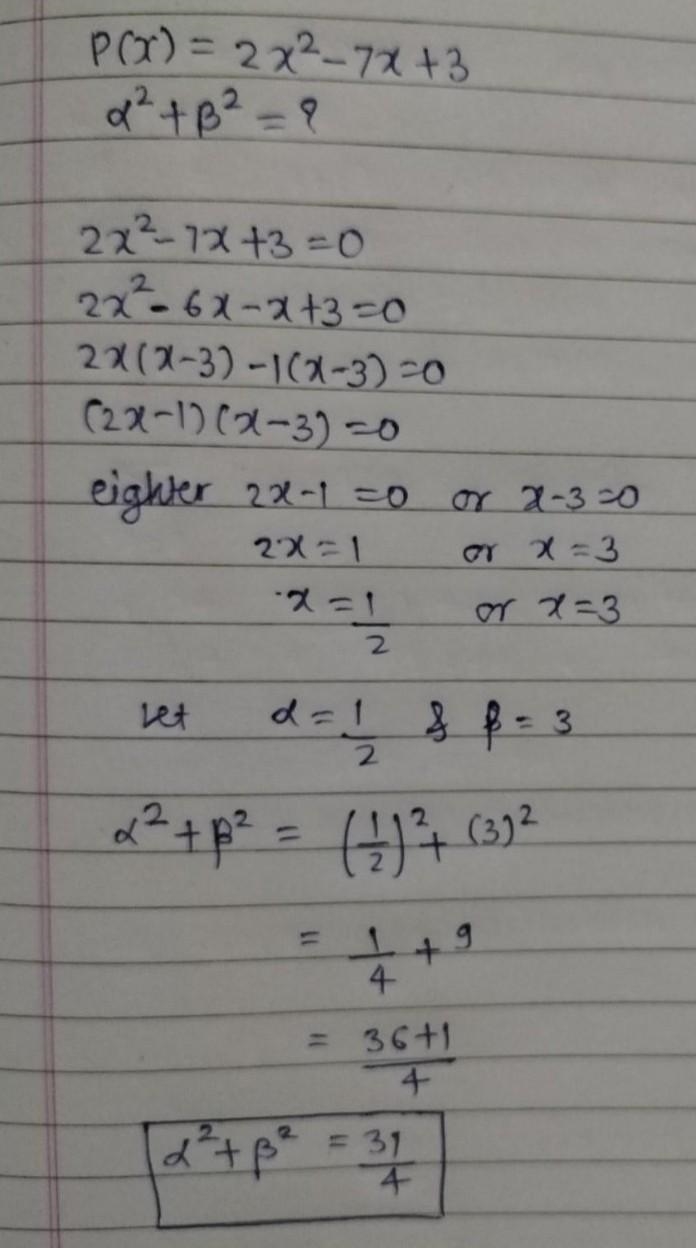 P(x) = 2x² - 7x + 3
α² + β² = ?
2x² - 7x + 3 = 0
2x² - 6x - x + 3 = 0
2x(x-3) - 1(x-3) = 0
(2x-1)(x-3) = 0
eighter 2x-1 = 0 or x-3 = 0
2x = 1 or x = 3
x = 1/2 or x = 3
Let α = 1/2 & β = 3
α² + β² = (1/2)² + (3)²
= 1/4 + 9
= (36+1)/4
α² + β² = 37/4